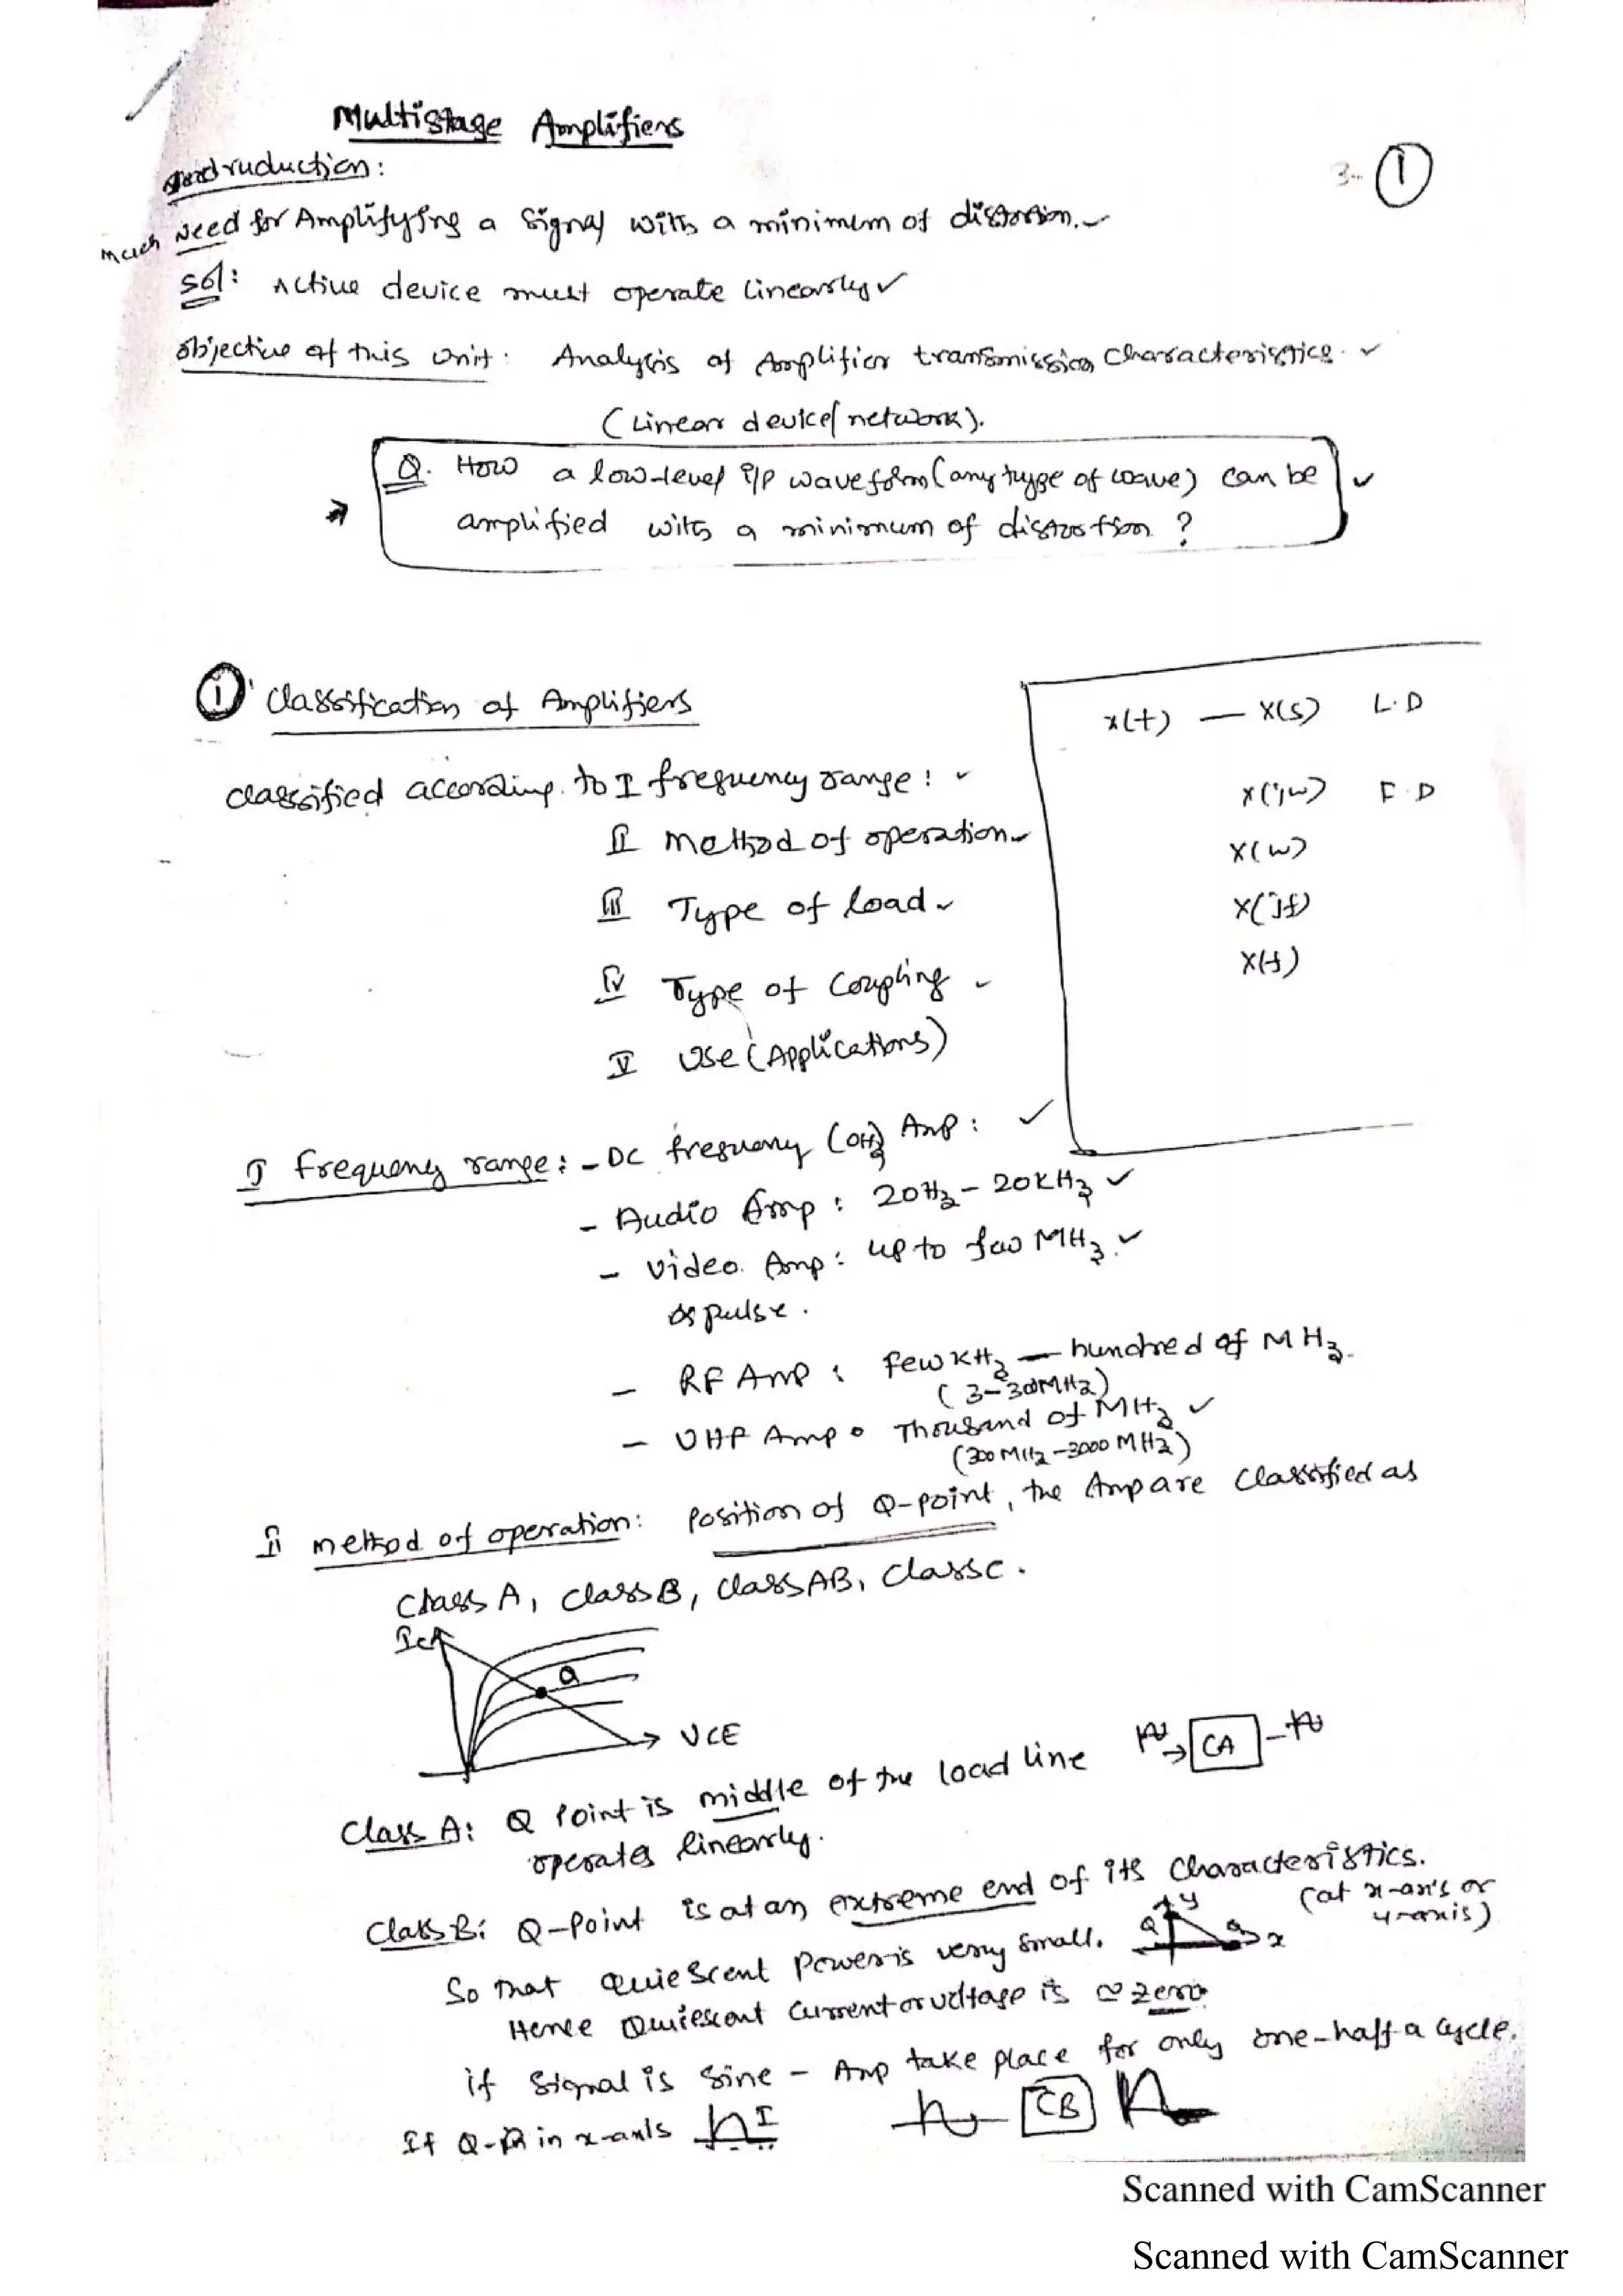 Multistage Amplifiers
Intruduction:
3- 1
Much Need for Amplifying a signal with a minimum of distortion.
Sol: Active device must operate linearly
Objective of this unit: Analysis of Amplifier transmission characteristics.
(Linear device/network).
Q. How a low-level i/p waveform (any type of wave) can be
amplified with a minimum of distortion ?
1 Classification of Amplifiers
x(t) — X(s) L.D
classified according to I frequency range:
X(jω) F.D
II Method of operation
X(ω)
III Type of load
X(jf)
IV Type of Coupling
X(f)
V Use (Applications)
I frequency range: - DC frequency (0Hz) Amp:
- Audio Amp : 20Hz - 20KHz
- Video Amp : up to few MHz.
or pulse.
- RF Amp : few KHz — hundred of MHz.
(3-300MHz)
- UHF Amp : Thousand of MHz
(300 MHz - 3000 MHz)
II method of operation: Position of Q-point, the Amp are classified as
Class A, Class B, Class AB, Class C.
Ic
Q
VCE
CA
Class A: Q Point is middle of the load line
operates linearly.
Class B: Q-Point is at an extreme end of its characteristics.
(at x-axis or
y-axis)
y
Q
Q
x
So that quiescent Power is very small.
Hence Quiescent current or voltage is ≃ zero
if signal is sine - Amp take place for only one-half a cycle.
CB
If Q-P in x-axis
I
Scanned with CamScanner
Scanned with CamScanner